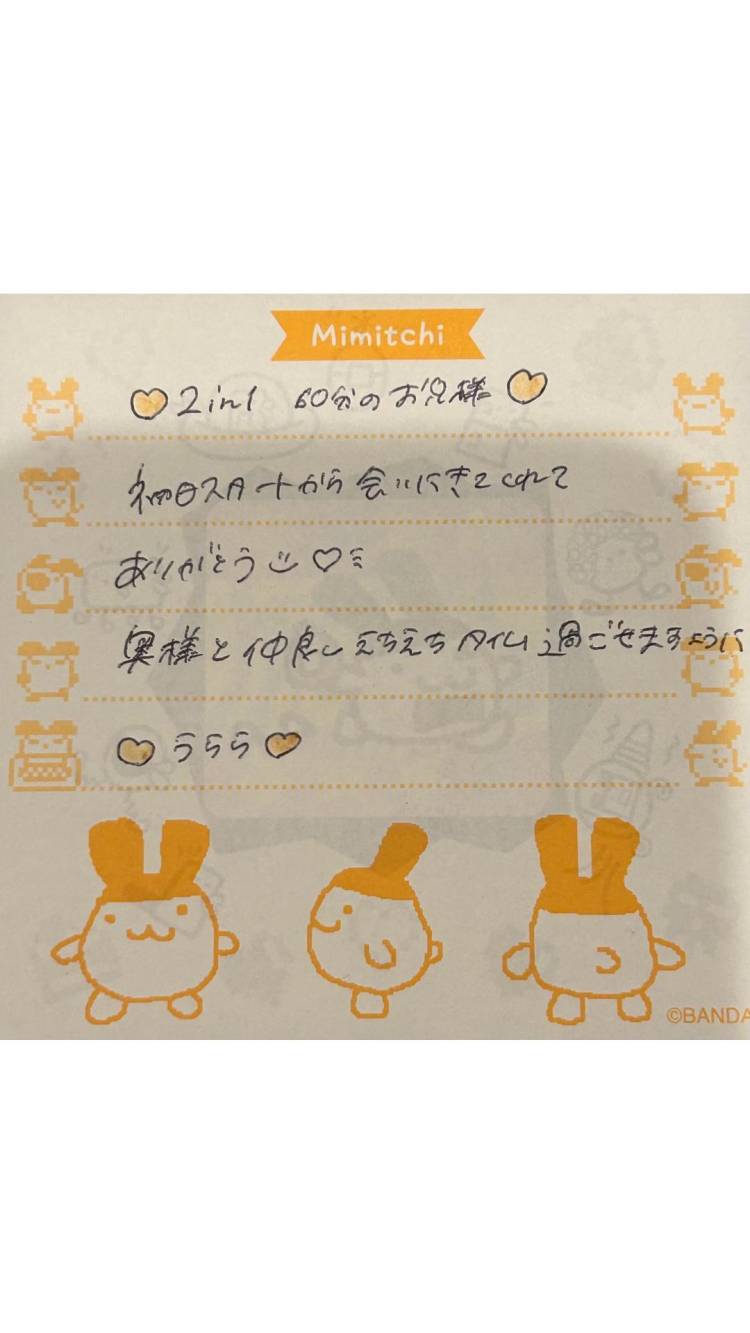 Mimitchi
♡2in1 60分のお兄様♡
初日スタートから会いにきてくれて
ありがとう♡
奥様と仲良しえちえちタイム過ごせますように
♡うらら♡
©BANDA